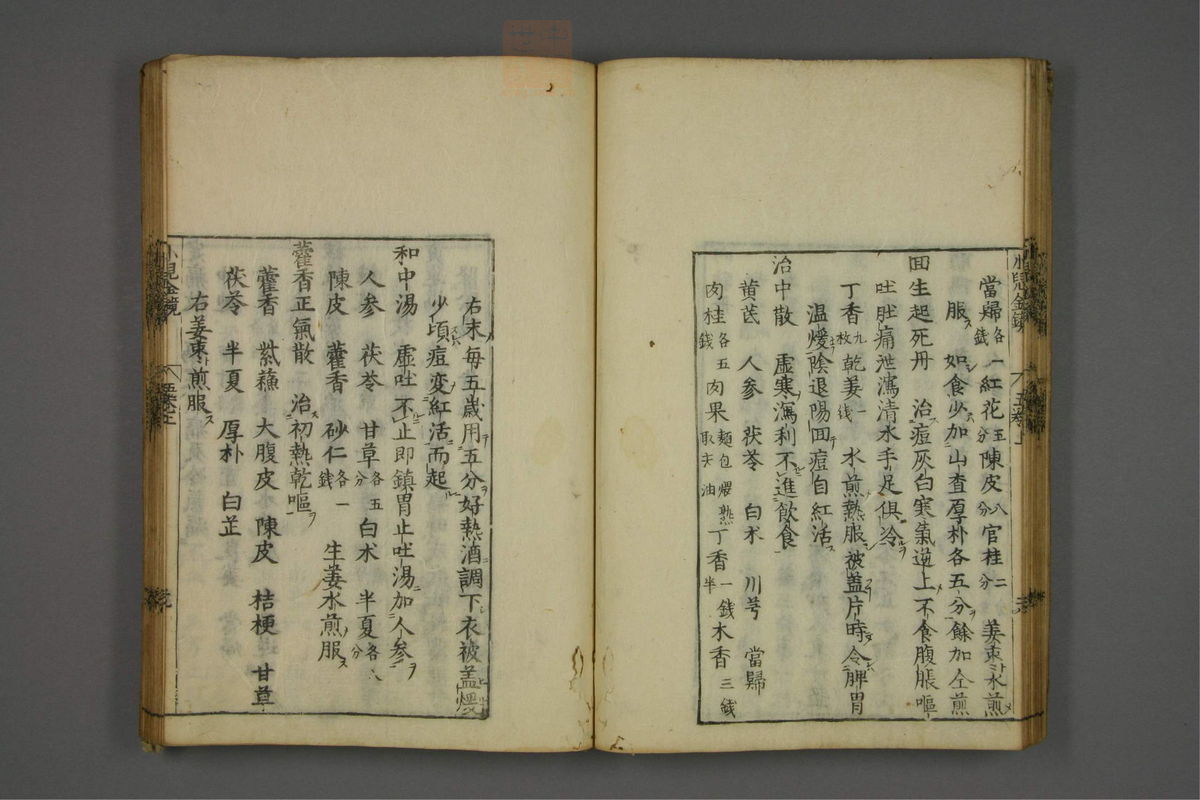 小兒金鏡
五卷上
當歸各一錢紅花五分陳皮八分官桂二分 姜棗水煎
服 如食少加山査厚朴各五分餘加仝煎
回生起死丹 治痘灰白寒氣逆上不食腹脹嘔
吐肚痛泄瀉清水手足俱冷
丁香九枚乾姜一錢 水煎熱服被盖片時令脾胃
温煖陰退陽回痘自紅活
治中散 虚寒瀉利不進飲食
黄芪 人參 茯苓 白术 川芎 當歸
肉桂各五錢肉果麺包煨熟取去油丁香一錢半木香三錢
右末毎五歳用五分好熱酒調下衣被盖煖
少頃痘変紅活而起
和中湯 虚吐不止即鎮胃止吐湯加人參
人參 茯苓 甘草各五分白术 半夏各八分
陳皮 藿香 砂仁各一錢 生姜水煎服
藿香正氣散 治初熱乾嘔
藿香 紫蘓 大腹皮 陳皮 桔梗 甘草
茯苓 半夏 厚朴 白芷
右姜棗煎服
小兒金鏡
五卷上